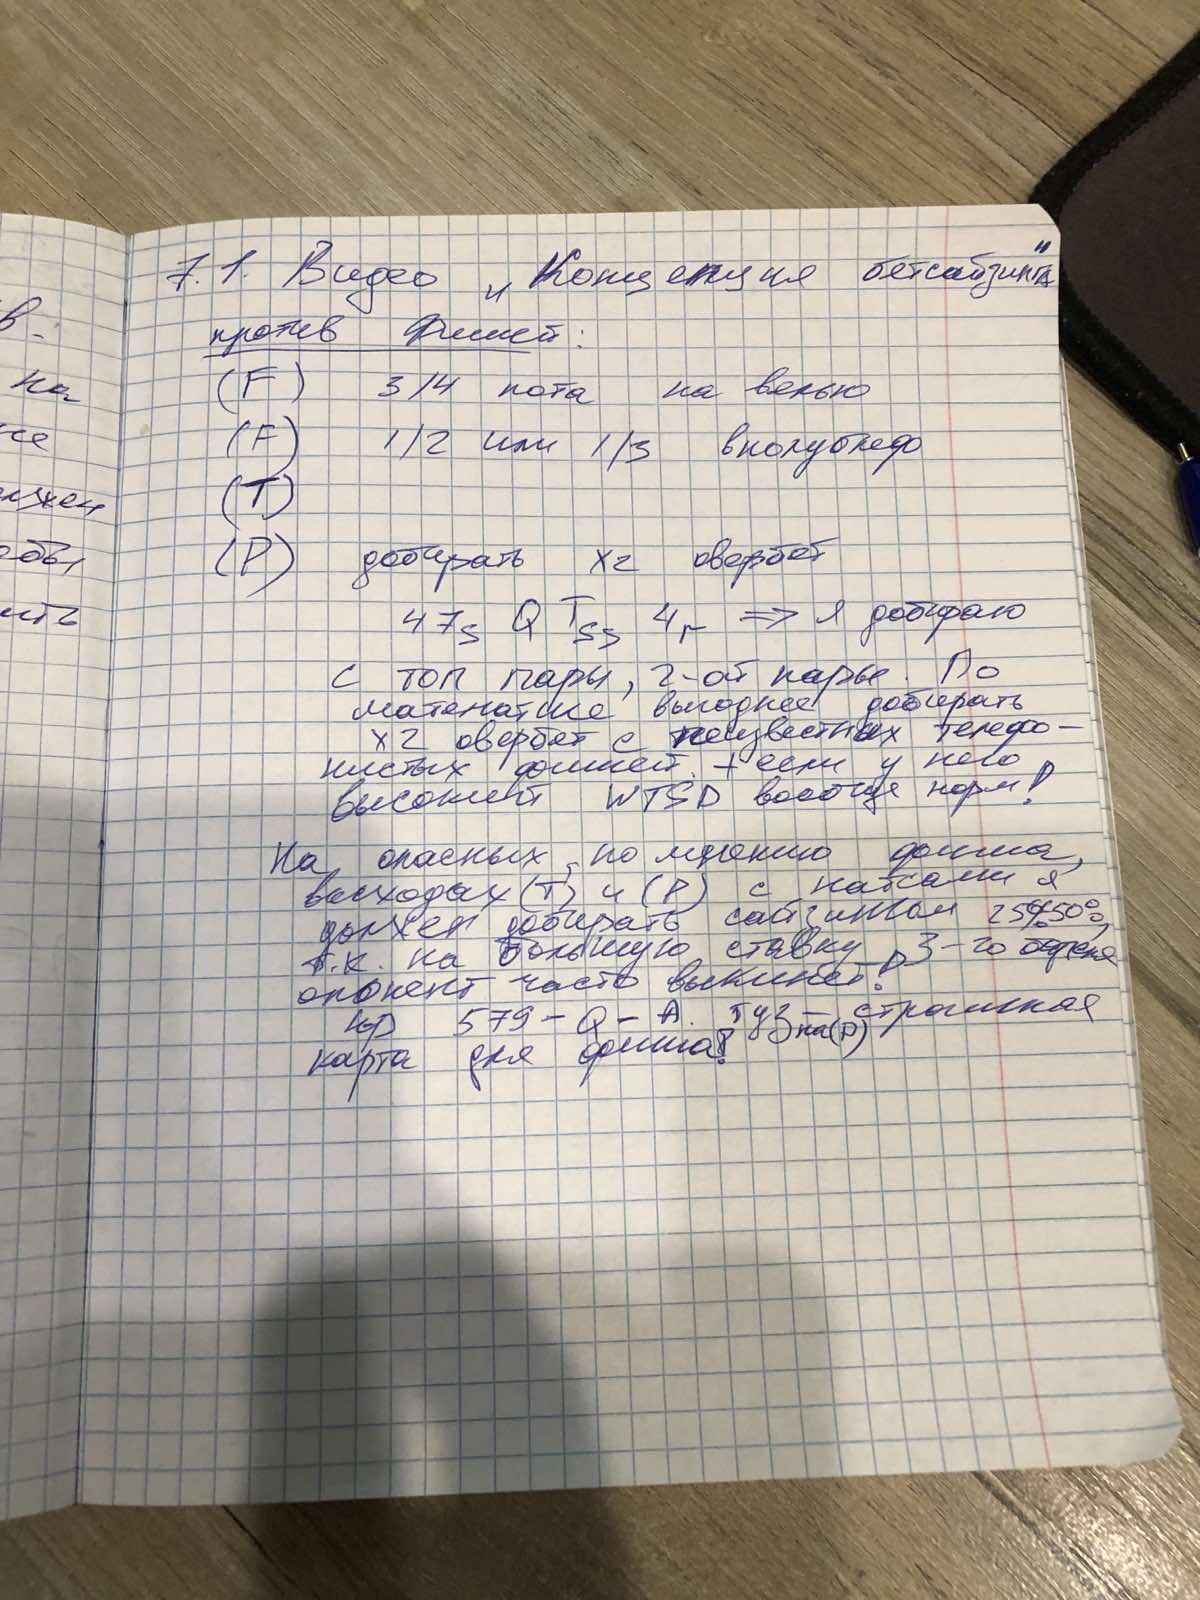 7.1. Видео „Концепция бетсайзинга"
против Фишей:
(F) 3/4 пота на велью
(F) 1/2 или 1/3 вполублеф
(T)
(P) добирать x2 овербет
47s QTss 4r => я добираю
с топ пары, 2-ой пары. По
математике выгоднее добирать
x2 овербет с неизвестных телефо-
нистых фишей. + если у него
высокий WTSD вообще норм!
На опасных, по мнению фиша,
выходах (T) и (P) с натсами я
должен добирать сайзингом 25%50%,
т.к. на большую ставку 3-го
опонент часто выкинет!
нр 579-Q-A. туз на(P) - страшная
карта для фиша!
в.
на
же
лжен
обы
ить